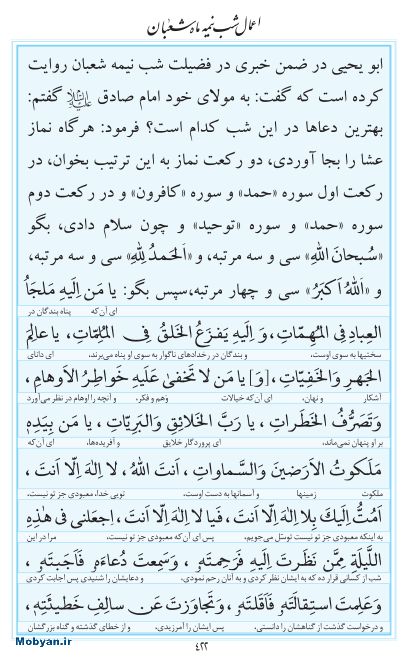 اعمال شب نیمه ماه شعبان
ابو یحیی در ضمن خبری در فضیلت شب نیمه شعبان روایت
کرده است که گفت: به مولای خود امام صادق علیه‌السلام گفتم:
بهترین دعاها در این شب کدام است؟ فرمود: هرگاه نماز
عشا را بجا آوردی، دو رکعت نماز به این ترتیب بخوان، در
رکعت اول سوره «حمد» و سوره «کافرون» و در رکعت دوم
سوره «حمد» و سوره «توحید» و چون سلام دادی، بگو
«سُبحانَ اللهِ» سی و سه مرتبه، و «اَلحَمدُ لِلّهِ» سی و سه مرتبه،
و «اَللهُ اَکبَرُ» سی و چهار مرتبه،سپس بگو: یا مَن اِلَیهِ مَلجَأُ
ای آن‌که پناه بندگان در
العِبادِ فِی المُهِمّاتِ، وَ اِلَیهِ یَفزَعُ الخَلقُ فِی المُلِمّاتِ، یا عالِمَ
سختیها به سوی اوست، و بندگان در رخدادهای ناگوار به سوی او پناه می‌برند، ای دانای
الجَهرِ وَ الخَفِیّاتِ، [وَ] یا مَن لا تَخفیٰ عَلَیهِ خَواطِرُ الاَوهامِ،
آشکار و نهان، ای آن‌که خیالات وهم و فکر، و آنچه را اوهام در نظر می‌آورد
وَ تَصَرُّفُ الخَطَراتِ، یا رَبَّ الخَلائِقِ وَ البَرِیّاتِ، یا مَن بِیَدِهٖ
بر او پنهان نمی‌ماند، ای پروردگار خلایق و آفریده‌ها، ای آن‌که
مَلَکوتُ الاَرَضینَ وَ السَّماواتِ، اَنتَ اللهُ، لا اِلٰهَ اِلّا اَنتَ،
ملکوت زمینها و آسمانها به دست اوست، تویی خدا، معبودی جز تو نیست،
اَمُتُّ اِلَیکَ بِلا اِلٰهَ اِلّا اَنتَ، فَیا لا اِلٰهَ اِلّا اَنتَ، اِجعَلنی فی هٰذِهِ
به اینکه معبودی جز تو نیست توسّل می‌جویم، پس ای آن‌که معبودی جز تو نیست، مرا در این
اللَّیلَةِ مِمَّن نَظَرتَ اِلَیهِ فَرَحِمتَهٗ، وَ سَمِعتَ دُعاءَهٗ فَاَجَبتَهٗ،
شب از کسانی قرار ده که به ایشان نظر کردی و به آنان رحم نمودی، و دعایشان را شنیدی پس اجابت کردی
وَ عَلِمتَ استِقالَتَهٗ فَاَقَلتَهٗ، وَ تَجاوَزتَ عَن سالِفِ خَطیئَتِهٖ،
و درخواست گذشت از گناهشان را دانستی، پس ایشان را آمرزیدی، و از خطای گذشته و گناه بزرگشان
۴۲۲
Mobyan.ir